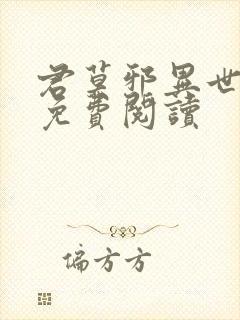 君莫邪異世
免費閱讀
偏方方